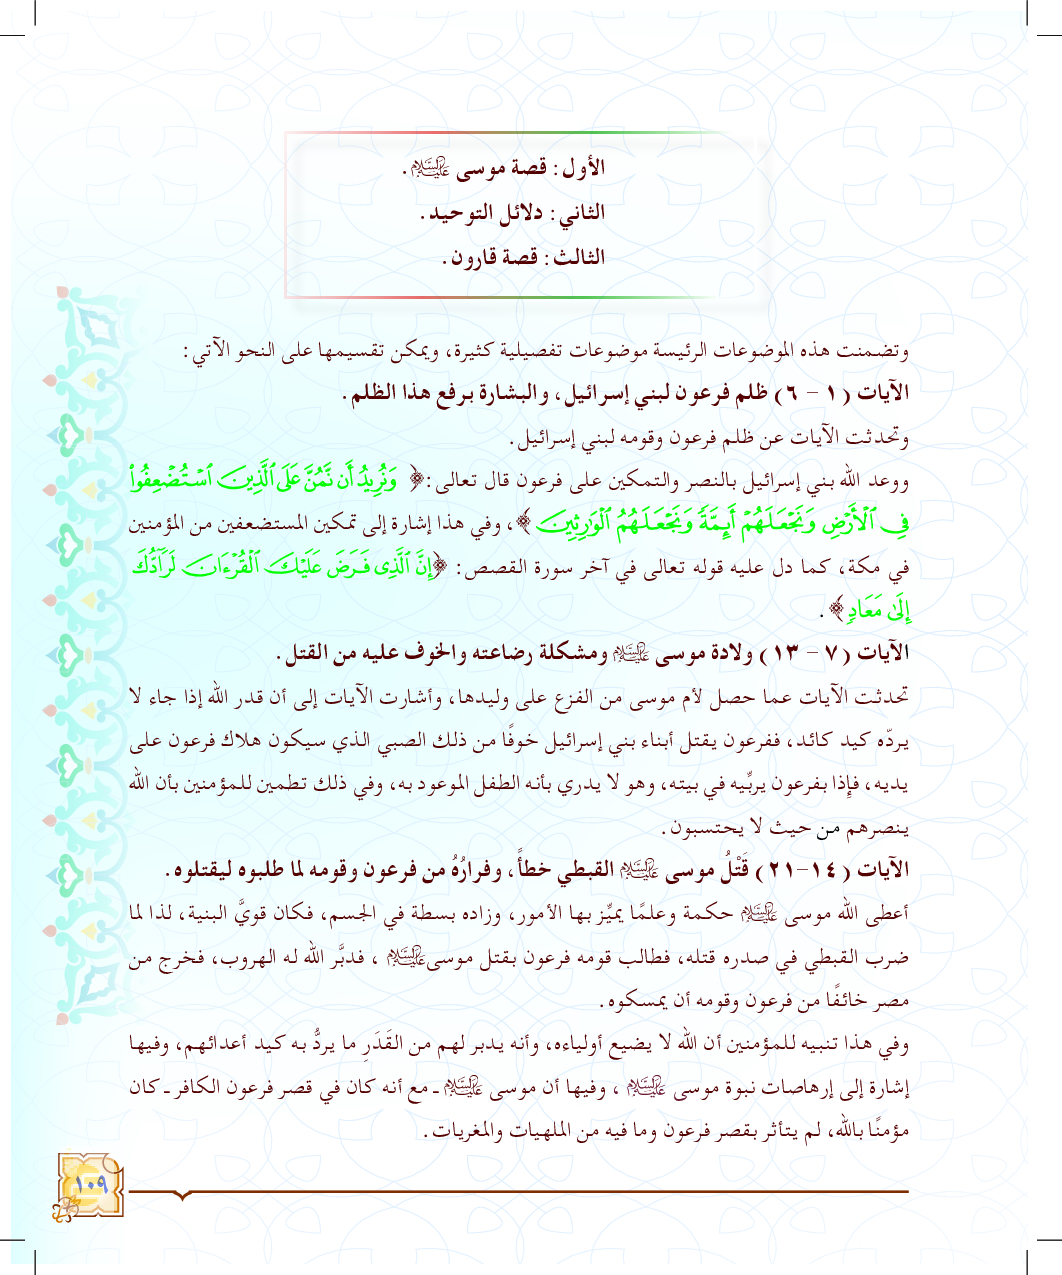 الأول: قصة موسى عليه السلام.
الثاني: دلائل التوحيد.
الثالث: قصة قارون.
وتضمنت هذه الموضوعات الرئيسة موضوعات تفصيلية كثيرة، ويمكن تقسيمها على النحو الآتي:
الآيات (١ - ٦) ظلم فرعون لبني إسرائيل، والبشارة برفع هذا الظلم.
وتحدثت الآيات عن ظلم فرعون وقومه لبني إسرائيل.
ووعد الله بني إسرائيل بالنصر والتمكين على فرعون قال تعالى: ﴿ وَنُرِيدُ أَن نَّمُنَّ عَلَى ٱلَّذِينَ ٱسْتُضْعِفُوا۟
فِى ٱلْأَرْضِ وَنَجْعَلَهُمْ أَئِمَّةً وَنَجْعَلَهُمُ ٱلْوَٰرِثِينَ ﴾، وفي هذا إشارة إلى تمكين المستضعفين من المؤمنين
في مكة، كما دل عليه قوله تعالى في آخر سورة القصص: ﴿إِنَّ ٱلَّذِى فَرَضَ عَلَيْكَ ٱلْقُرْءَانَ لَرَآدُّكَ
إِلَىٰ مَعَادٍ﴾.
الآيات (٧ - ١٣) ولادة موسى عليه السلام ومشكلة رضاعته والخوف عليه من القتل.
تحدثت الآيات عما حصل لأم موسى من الفزع على وليدها، وأشارت الآيات إلى أن قدر الله إذا جاء لا
يردّه كيد كائد، ففرعون يقتل أبناء بني إسرائيل خوفًا من ذلك الصبي الذي سيكون هلاك فرعون على
يديه، فإذا بفرعون يربِّيه في بيته، وهو لا يدري بأنه الطفل الموعود به، وفي ذلك تطمين للمؤمنين بأن الله
ينصرهم من حيث لا يحتسبون.
الآيات (١٤-٢١) قَتْلُ موسى عليه السلام القبطي خطأً، وفرارُهُ من فرعون وقومه لما طلبوه ليقتلوه.
أعطى الله موسى عليه السلام حكمة وعلمًا يميِّز بها الأمور، وزاده بسطة في الجسم، فكان قويَّ البنية، لذا لما
ضرب القبطي في صدره قتله، فطالب قومه فرعون بقتل موسى عليه السلام، فدبَّر الله له الهروب، فخرج من
مصر خائفًا من فرعون وقومه أن يمسكوه.
وفي هذا تنبيه للمؤمنين أن الله لا يضيع أولياءه، وأنه يدبر لهم من القَدَرِ ما يردُّ به كيد أعدائهم، وفيها
إشارة إلى إرهاصات نبوة موسى عليه السلام، وفيها أن موسى عليه السلام ـ مع أنه كان في قصر فرعون الكافر ـ كان
مؤمنًا بالله، لم يتأثر بقصر فرعون وما فيه من الملهيات والمغريات.
١٠٩